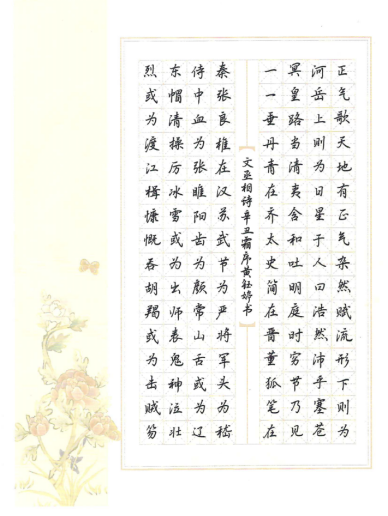 正气歌天地有正气杂然赋流形下则为
河岳上则为日星于人曰浩然沛乎塞苍
冥皇路当清夷含和吐明庭时穷节乃见
一一垂丹青在齐太史简在晋董狐笔在
文丞相诗辛丑霜序黄钰婷书
秦张良椎在汉苏武节为严将军头为嵇
侍中血为张睢阳齿为颜常山舌或为辽
东帽清操厉冰雪或为出师表鬼神泣壮
烈或为渡江楫慷慨吞胡羯或为击贼笏